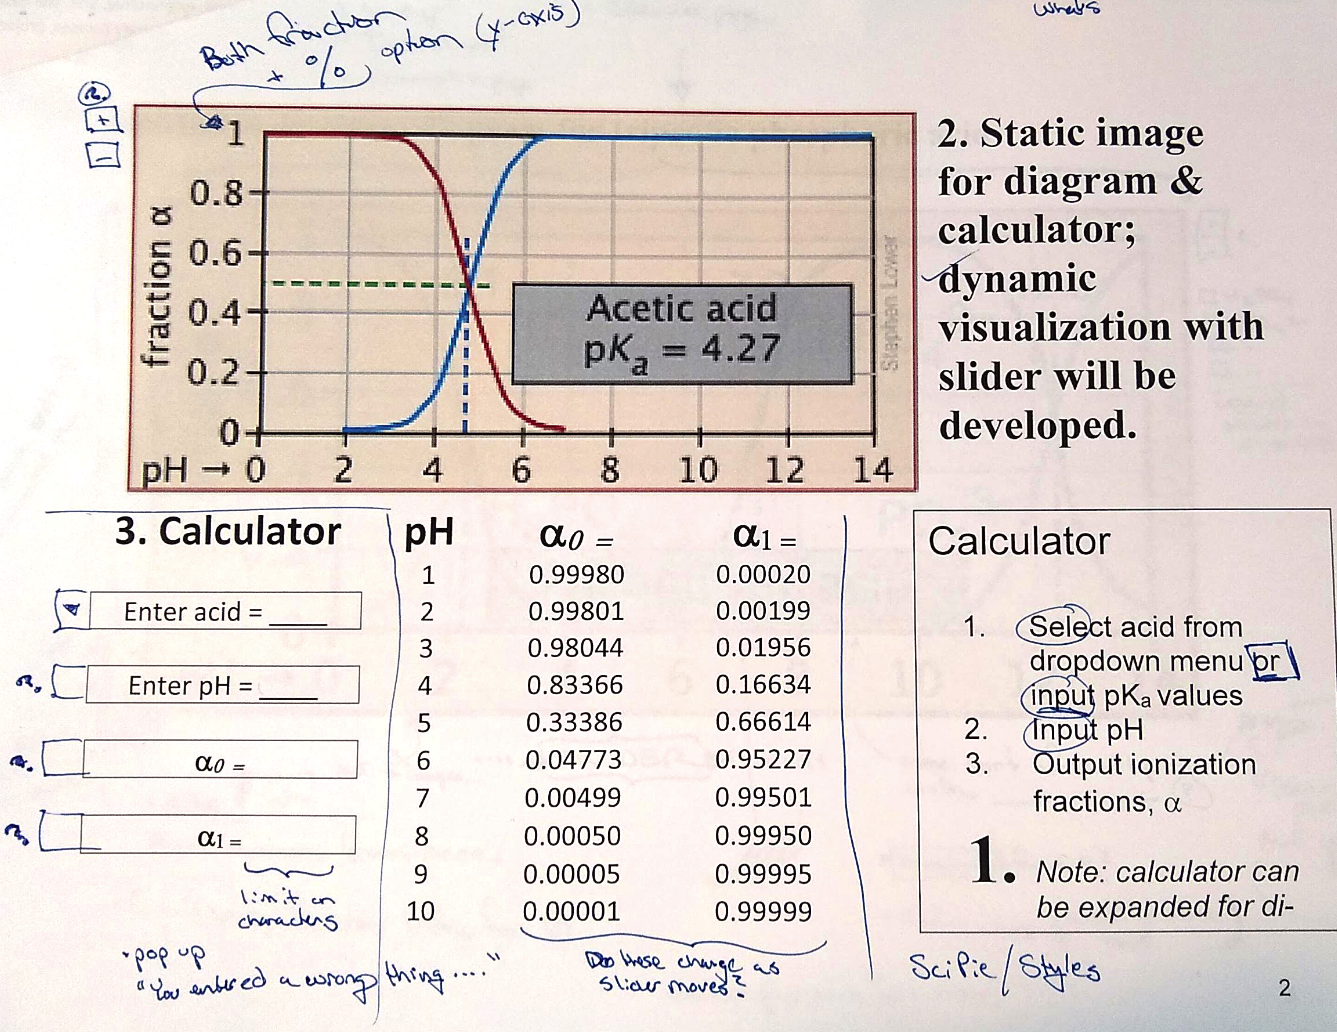 whats
Both fraction
+ % option (y-axis)
+
-
1
0.8
0.6
0.4
0.2
0
fraction α
pH → 0 2 4 6 8 10 12 14
Acetic acid
pKa = 4.27
Stephen Lower
2. Static image
for diagram &
calculator;
dynamic
visualization with
slider will be
developed.
3. Calculator
Enter acid = ____
Enter pH = ____
α0 =
α1 =
limit on
characters
•pop up
"You entered a wrong thing ...."
pH α0 = α1 =
1 0.99980 0.00020
2 0.99801 0.00199
3 0.98044 0.01956
4 0.83366 0.16634
5 0.33386 0.66614
6 0.04773 0.95227
7 0.00499 0.99501
8 0.00050 0.99950
9 0.00005 0.99995
10 0.00001 0.99999
Do these change as
slider moves?
Calculator
1. Select acid from
dropdown menu or
input pKa values
2. Input pH
3. Output ionization
fractions, α
1. Note: calculator can
be expanded for di-
SciPie/Styles
2